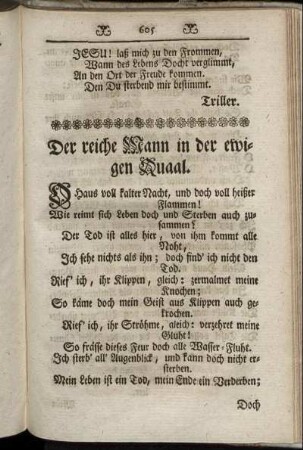 605
JESU! laß mich zu den Frommen,
Wann des Lebens Docht verglimmt,
An den Ort der Freude kommen.
Den Du sterbend mir bestimmt.
Triller.
Der reiche Mann in der ewi-
gen Quaal.
O Haus voll kalter Nacht, und doch voll heißer
Flammen!
Wie reimt sich Leben doch und Sterben auch zu-
sammen!
Der Tod ist alles hier, von ihm kommt alle
Noht,
Ich sehe nichts als ihn; doch find' ich nicht den
Tod.
Rief' ich, ihr Klippen, gleich: zermalmet meine
Knochen;
So käme doch mein Geist aus Klippen auch ge-
krochen.
Rief' ich, ihr Ströhme, gleich: verzehret meine
Gluht!
So frässe dieses Feur doch alle Wasser-Fluht.
Ich sterb' all' Augenblick, und kann doch nicht er-
sterben.
Mein Leben ist ein Tod, mein Ende ein Verderben;
Doch